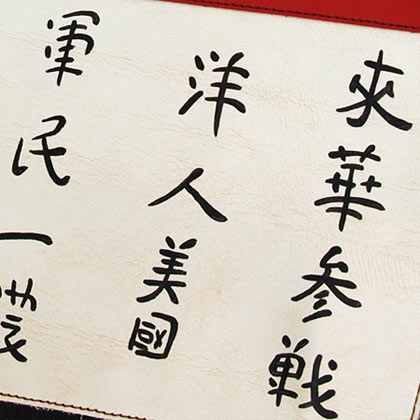 來華参戦
洋人美國
軍民一